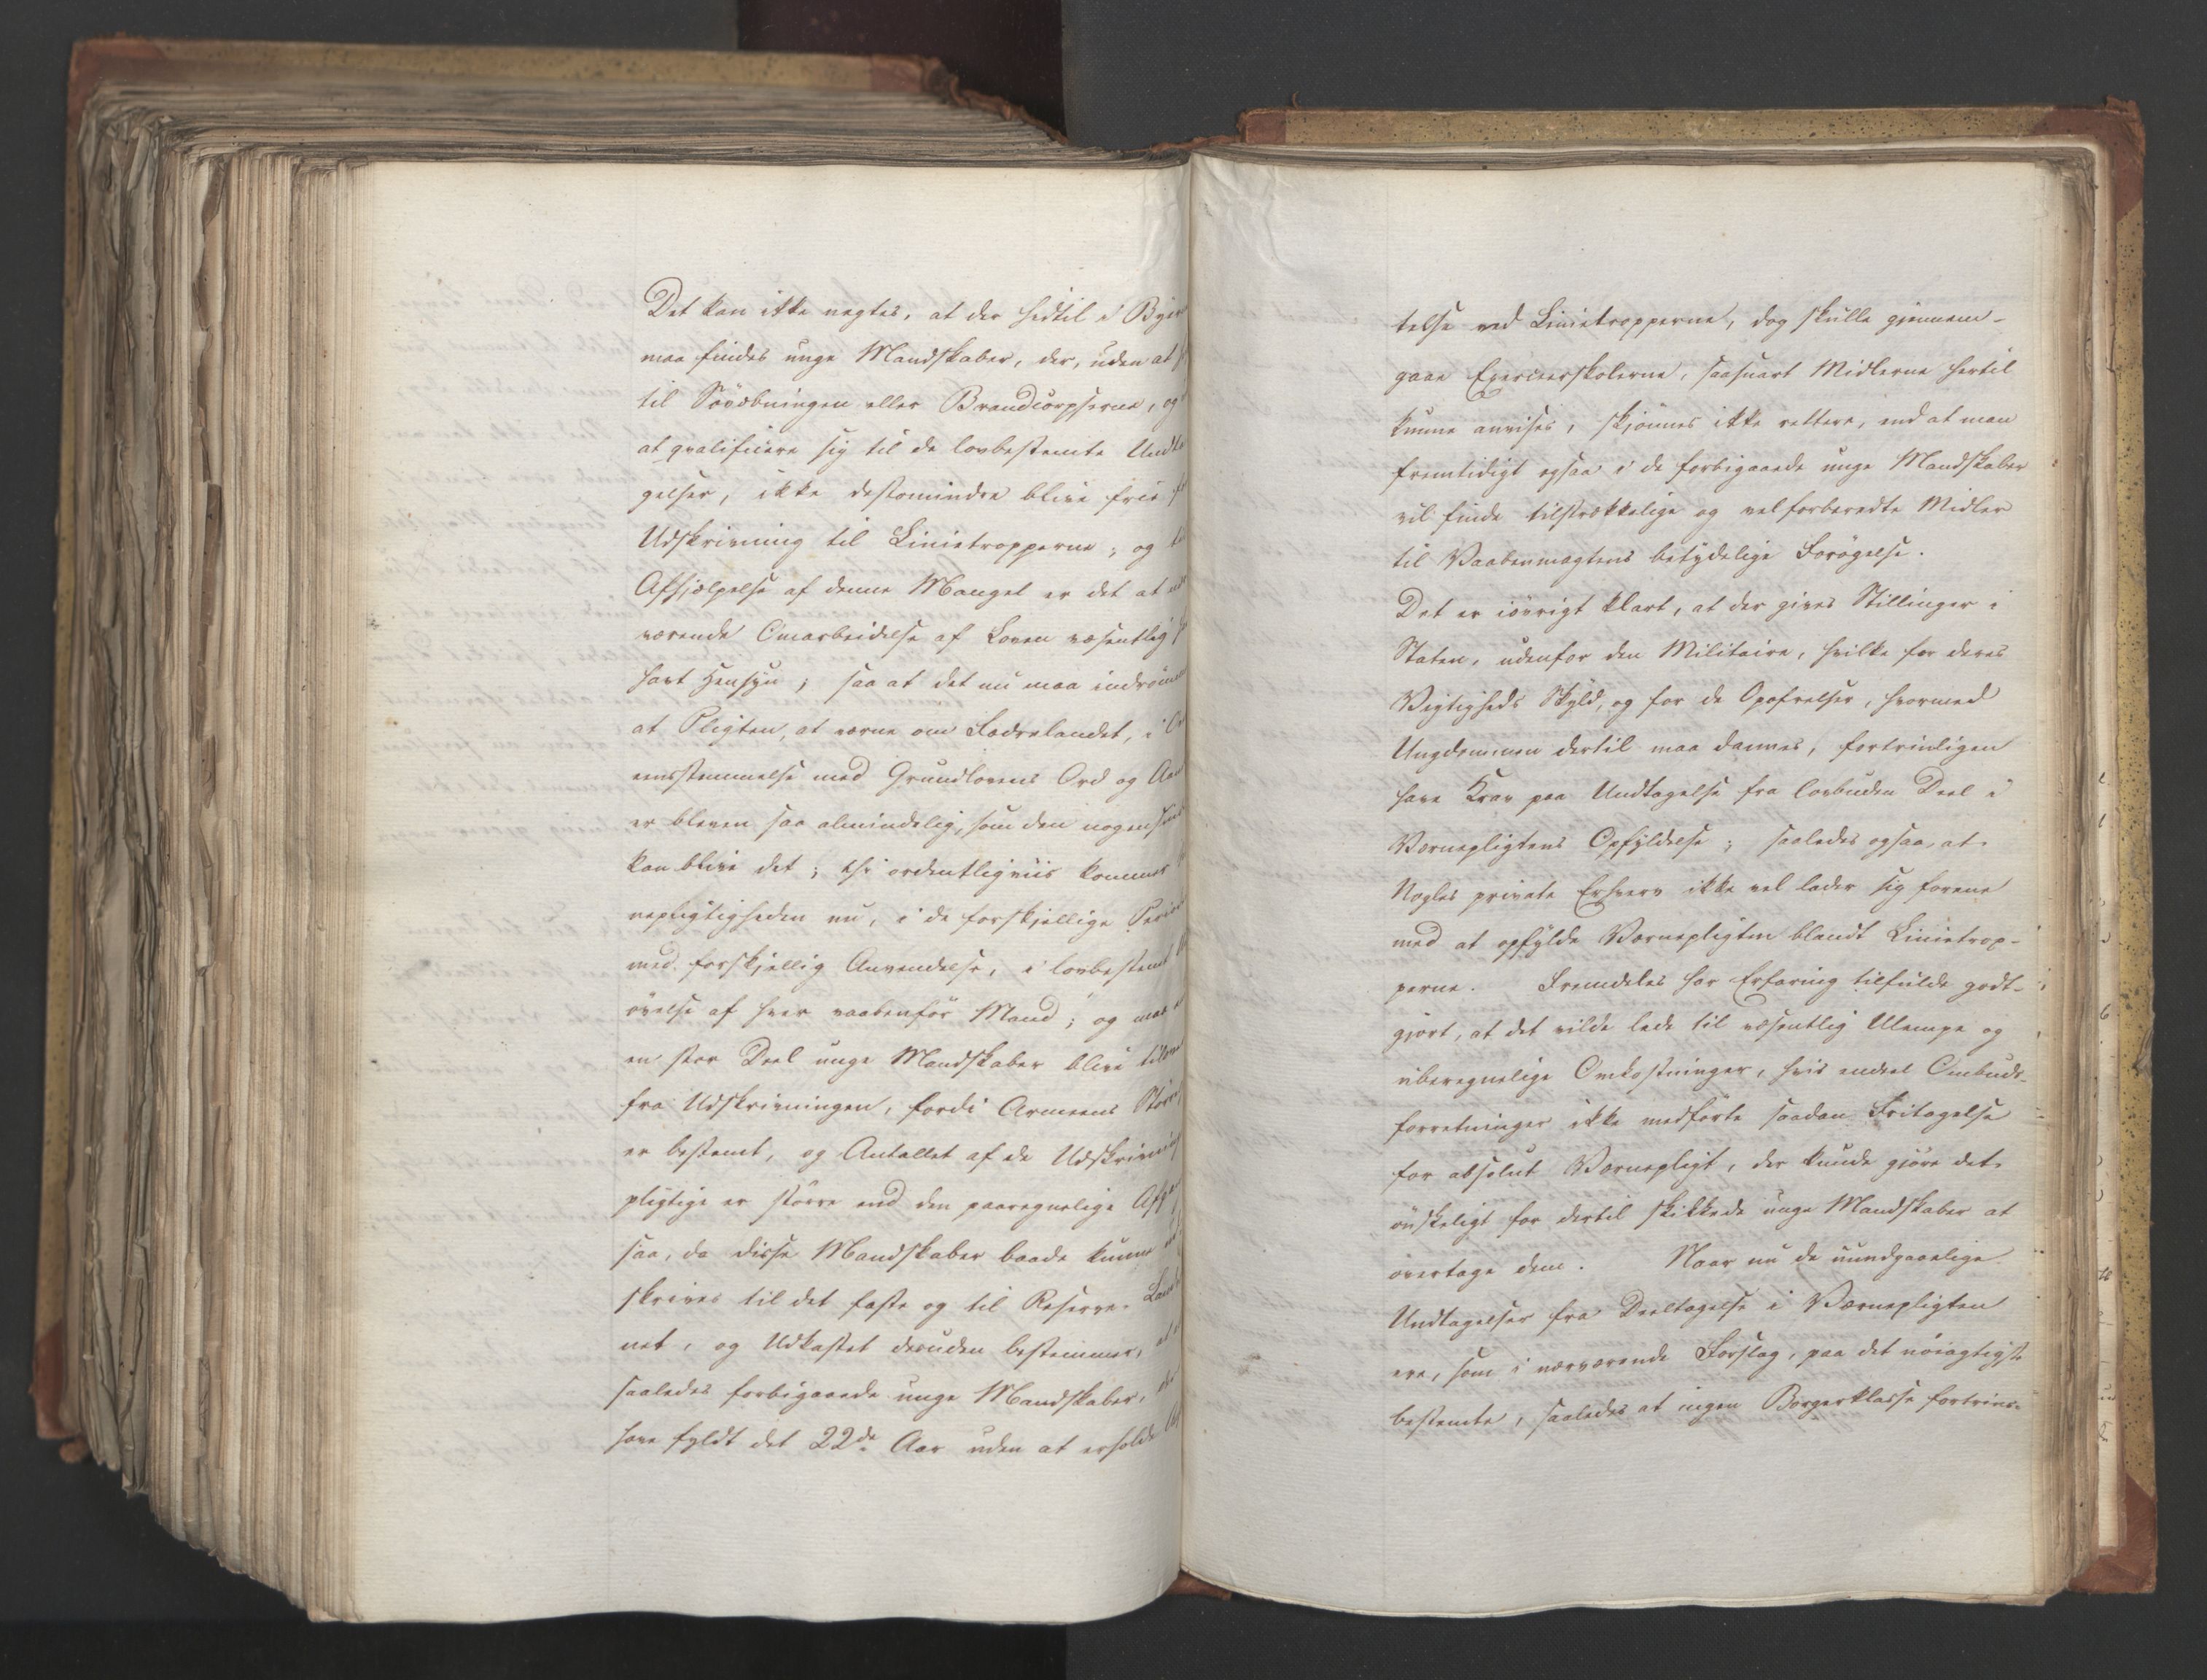 Det kan ikke negtes, at der hidtil i Byer
maa findes unge Mandskaber, der, uden at
til Søvæbningen eller Brandcorpserne, og
at qvalificere sig til de lovbestemte Undta
gelser, ikke destomindre blive frie
Udskrivning til Linietropperne; og
Afhjælpelse af denne Mangel er det at nær
værende Omarbeidelse af Loven væsentlig
havt Hensyn; saa at det nu maa indrømm
at Pligten, at værne om Fædrelandet, i Ov
eensstemmelse med Grundlovens Ord og Aand
er bleven saa almindelig, som den nogensinde
kan blive det; thi ordentligviis kommer
nepligtigheden nu, i de forskjellige Perio
med forskjellig Anvendelse, i lovbestemt
øvelse af hver vaabenfør Mand; og maa
en stor Deel unge Mandskaber blive tilovers
fra Udskrivningen, fordi Armeens Størr
er bestemt, og Antallet af de Udskrivnings
pligtige er større end den paaregnelige Afg
saa, da disse Mandskaber baade kunne ud
skrives til det faste og til Reserve-Land
net, og Udkastet desuden bestemmer, at
saaledes forbigaaede unge Mandskaber,
have fyldt det 22de Aar uden at erholde
telse ved Linietropperne, dog skulle gjennem-
gaae Exerceerskolerne, saasnart Midlerne hertil
kunne anvises, skjønnes ikke rettere, end at man
fremtidigt ogsaa i de forbigaaede unge Mandskaber
vil finde tilstrækkelige og vel forberedte Midler
til Vaabenmagtens betydelige Forøgelse.
Det er iøvrigt klart, at der gives Stillinger i
Staten, udenfor den Militaire, hvilke for deres
Vigtigheds Skyld, og for de Opofrelser, hvormed
Ungdommen dertil maa dannes, fortrinligen
have Krav paa Undtagelse fra lovbuden Deel i
Værnepligtens Opfyldelse; saaledes ogsaa, at
Nogles private Erhverv ikke vel lader sig forene
med at opfylde Værnepligten blandt Linietrop-
perne. Fremdeles har Erfaring tilfulde godt-
gjort, at det vilde lede til væsentlig Ulempe og
uberegnelige Omkostninger, hvis endeel Ombuds-
forretninger ikke medførte saadan Fritagelse
for absolut Værnepligt, der kunde gjøre det
ønskeligt for dertil skikkede unge Mandskaber at
overtage dem. Naar nu de uundgaaelige
Undtagelser fra Deeltagelse i Værnepligten
ere, som i nærværende Forslag, paa det nøiagtigste
bestemte, saaledes at ingen Borgerklasse fortrins-